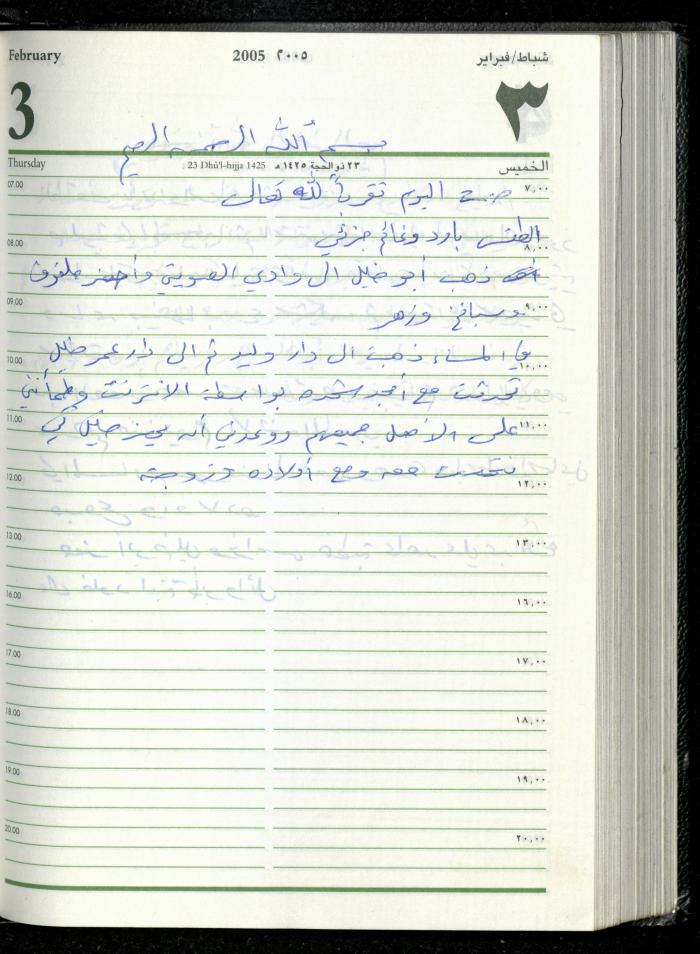 February 2005 ٢٠٠٥ شباط/فبراير
3 ٣
بسم الله الرحمن الرحيم
Thursday 23 Dhū'l-hijja 1425 ٢٣ ذو الحجة ١٤٢٥ هـ الخميس
07.00 صمت اليوم تقرباً لله تعالى ٧,٠٠
الطقس بارد وغائم جزئي
08.00 ٨,٠٠
ذهب أبو خليل الى وادي الصويتي وأحضر ملفوف
09.00 وسبانخ وزهر ٩,٠٠
10.00 في المساء ذهبت الى دار وليد ثم الى دار عمر خليل ١٠,٠٠
تحدثت مع أمجد شحده بواسطة الانترنت وطمأنني
11.00 على الأهل جميعهم ووعدني أن يحضر خليل كي ١١,٠٠
نتحدث معه ومع أولاده وزوجته
12.00 ١٢,٠٠
13.00 ١٣,٠٠
16.00 ١٦,٠٠
17.00 ١٧,٠٠
18.00 ١٨,٠٠
19.00 ١٩,٠٠
20.00 ٢٠,٠٠